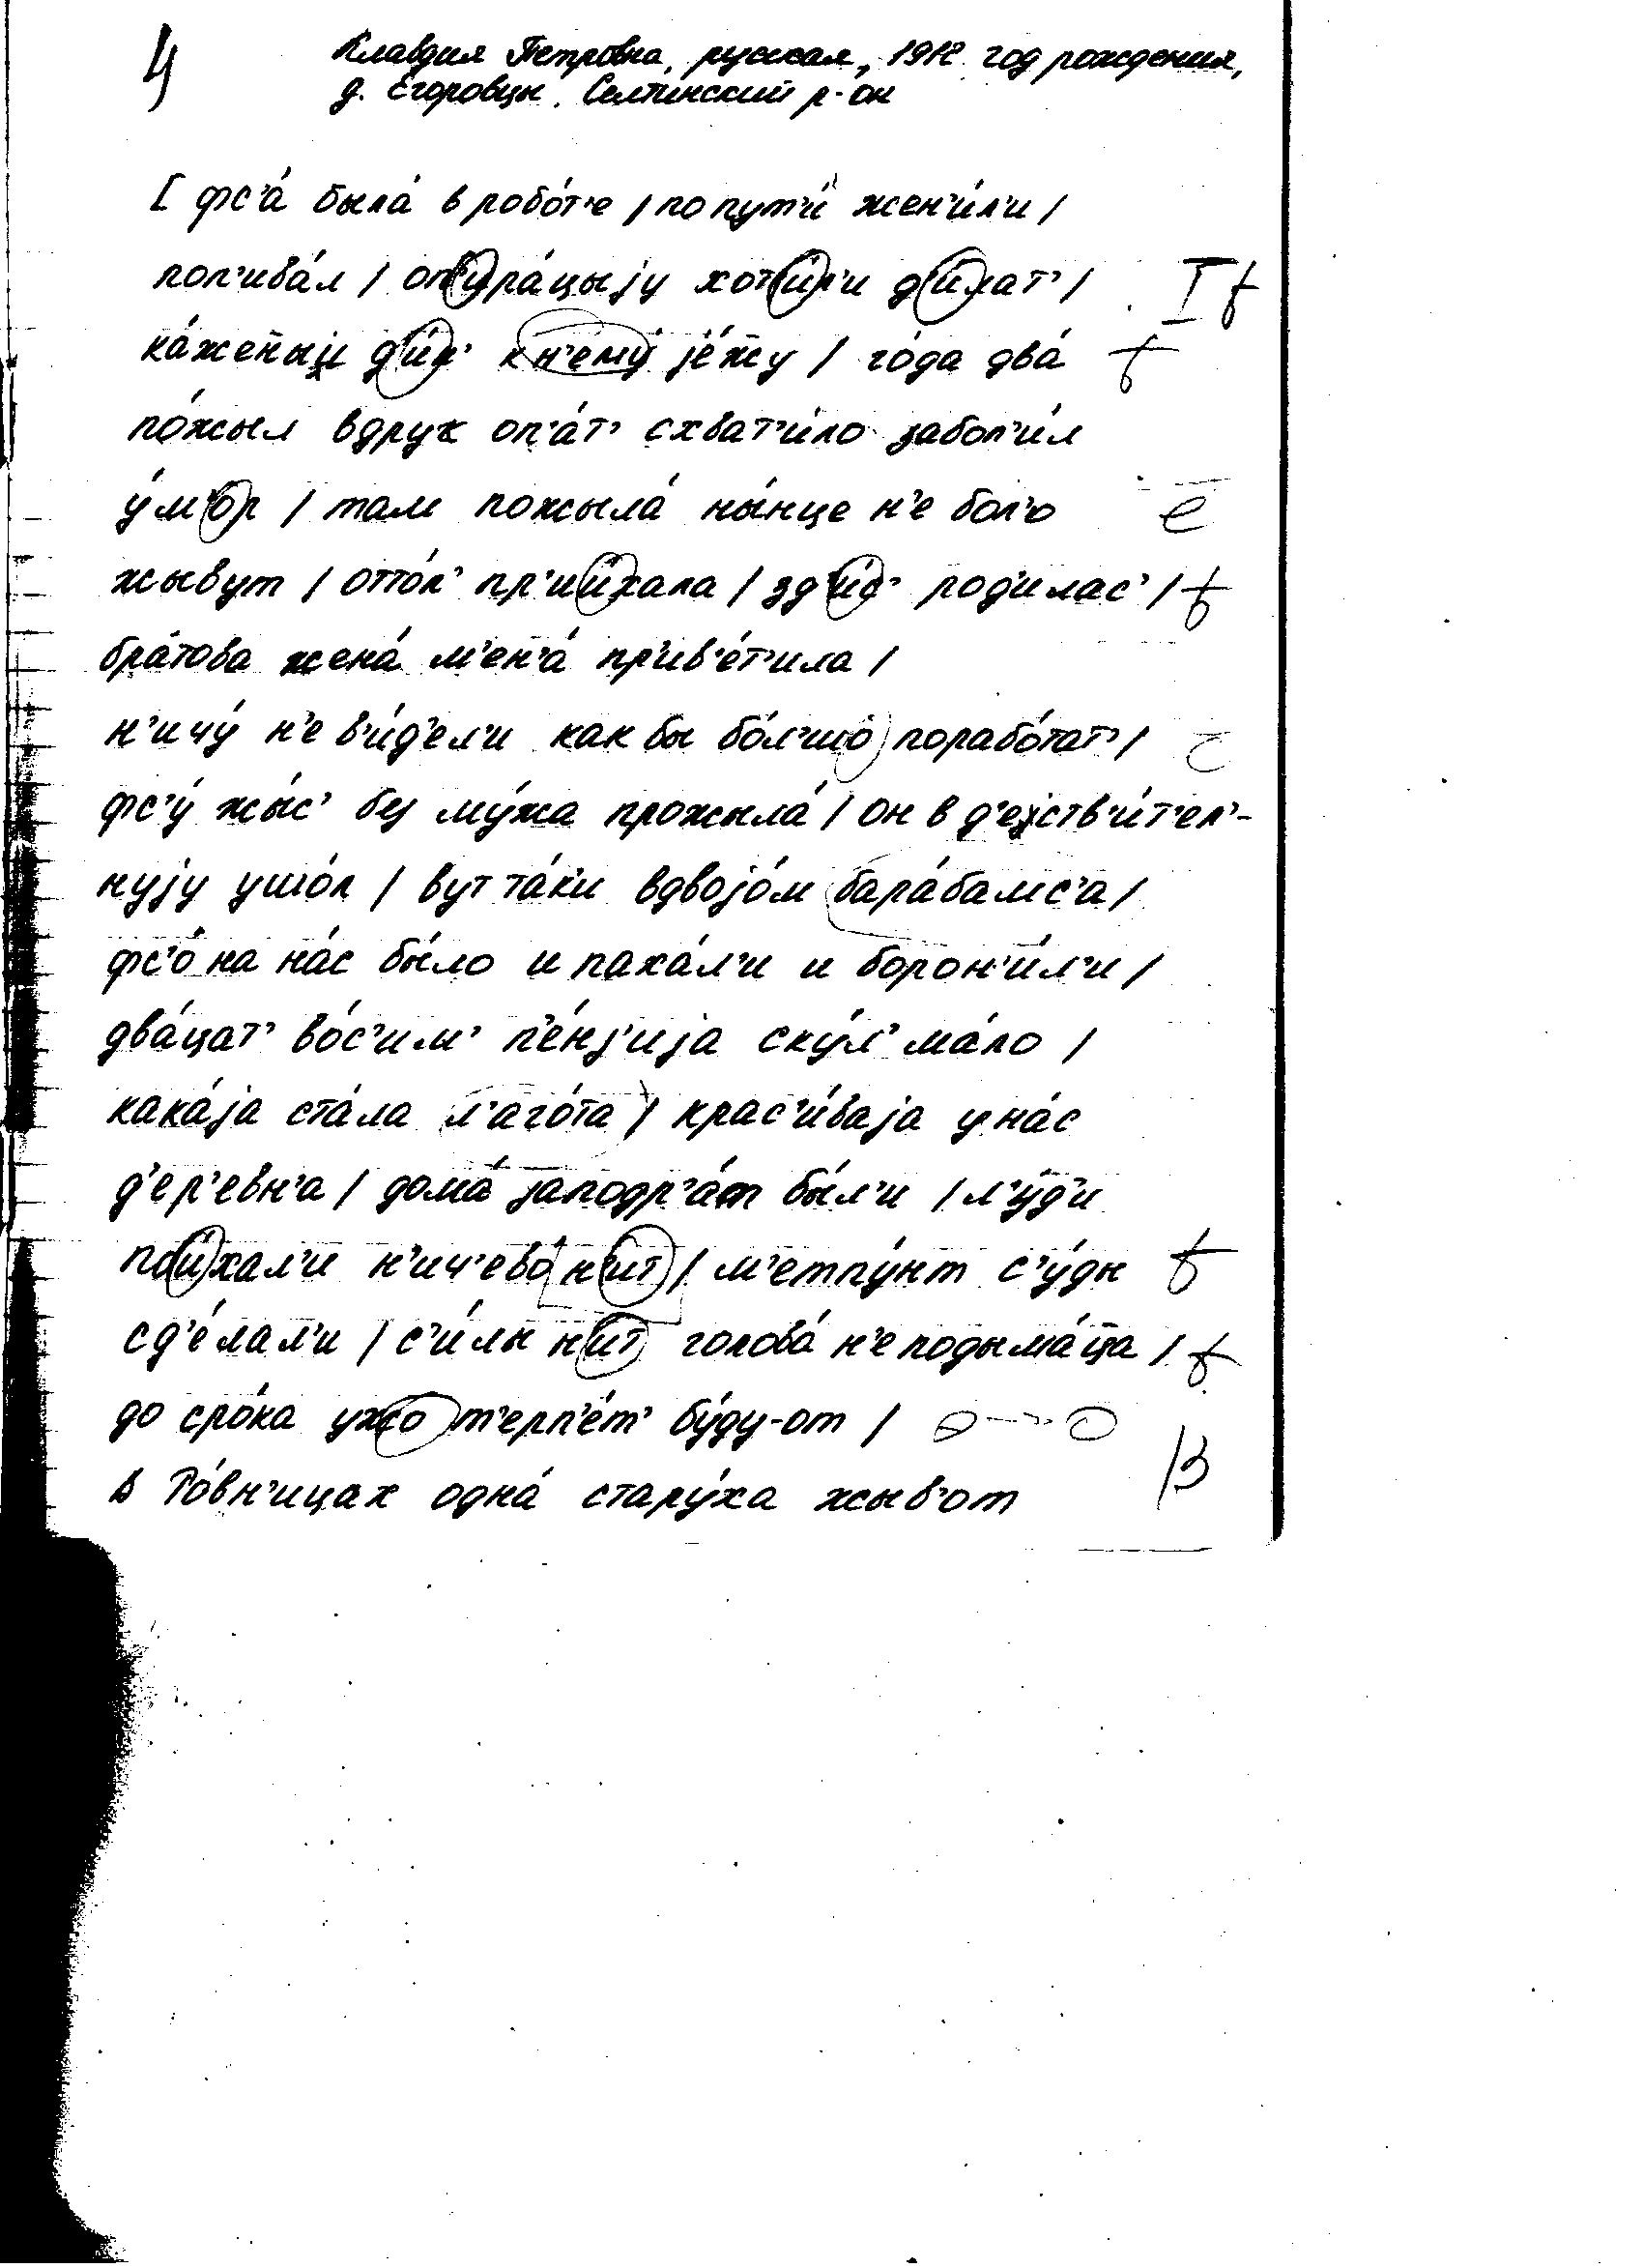 4
Клавдия Петровна, русская, 1912 год рождения,
д. Егоровцы, Селтинский р-он
[ фс'а́ была́ в робо́т'е / по пут'и́ жен'и́л'и /
пол'ива́л / оп'ира́цыjу хот'и́л'и д'и́лат' /
I ѣ
ка́женыи д'и́н' к н'ему́ jе́жу / го́да два́
ѣ
по́жыл вдрук оп'а́т' схват'и́ло забол'и́л
у́м'ор / там пожыла́ ны́нце н'е бол'о
е
жывут / отто́л' пр'ии́хала / зд'ис' род'илас' /
ѣ
бра́това жена́ м'ен'а́ пр'ив'е́т'ила /
н'ичу́ н'е в'и́д'ел'и как бы бо́л'шо порабо́тат' /
фс'у́ жы́с' без му́жа прожыла́ / он в д'еjств'и́т'ел'-
нуjу ушо́л / вут та́к'и вдвоjо́м бара́бамс'а /
фс'о́ на на́с бы́ло и паха́л'и и борон'и́л'и /
два́цат' во́с'им' п'е́нз'иjа ску́л' ма́ло /
кака́jа ста́ла л'аго́та / крас'и́ваjа у на́с
д'ер'евн'а / дома́ заподр'а́т бы́л'и / л'у́д'и
пои́хал'и н'ич'ево́ н'ит / м'етпу́нт с'у́ды
ѣ
сд'е́лал'и / с'и́лы н'ит голова́ н'е подыма́ца /
ѣ
до сро́ка ужо т'ерп'е́т' бу́ду-от /
в Ро́вн'ицах одна́ стару́ха жыв'от